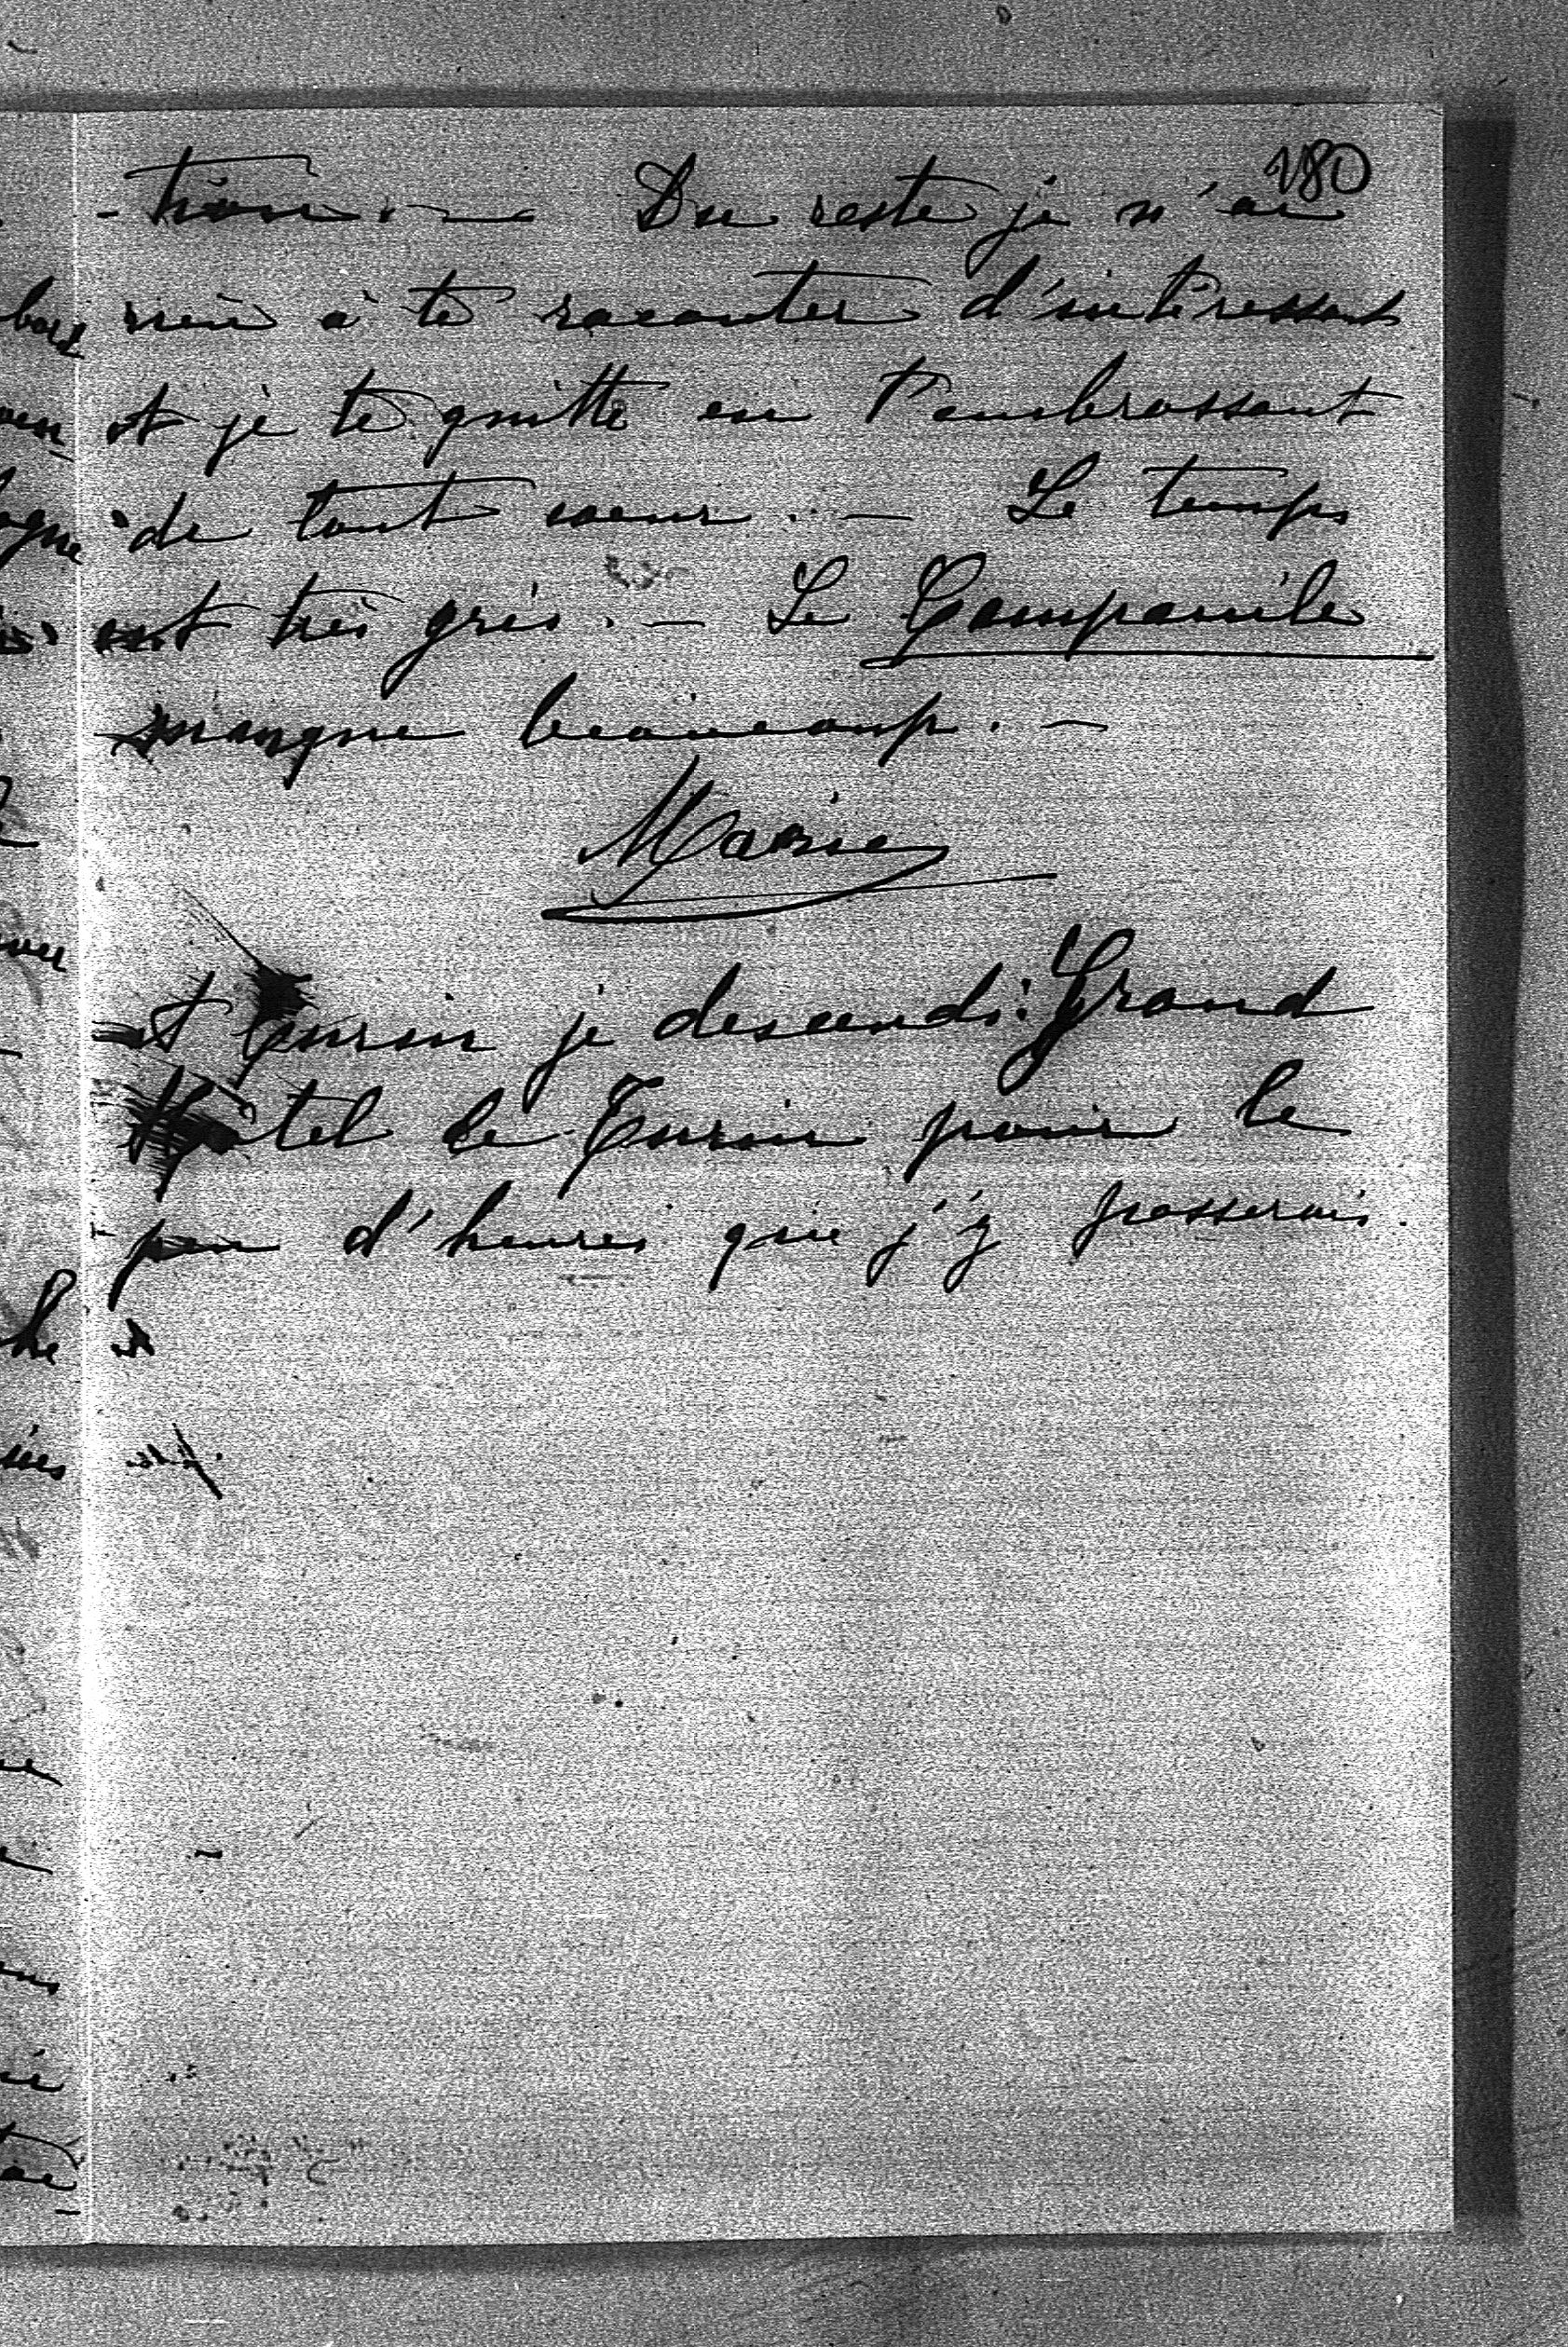 180
-tion. — Du reste je n'ai
rien à te raconter d'intéressant
et je te quitte en t'embrassant
de tout coeur. — Le temps
est très gris. — Le Campanile
manque beaucoup. —
Marie
A Turin je descends: Grand
Hôtel de Turin pour le
peu d'heures que j'y passerais.